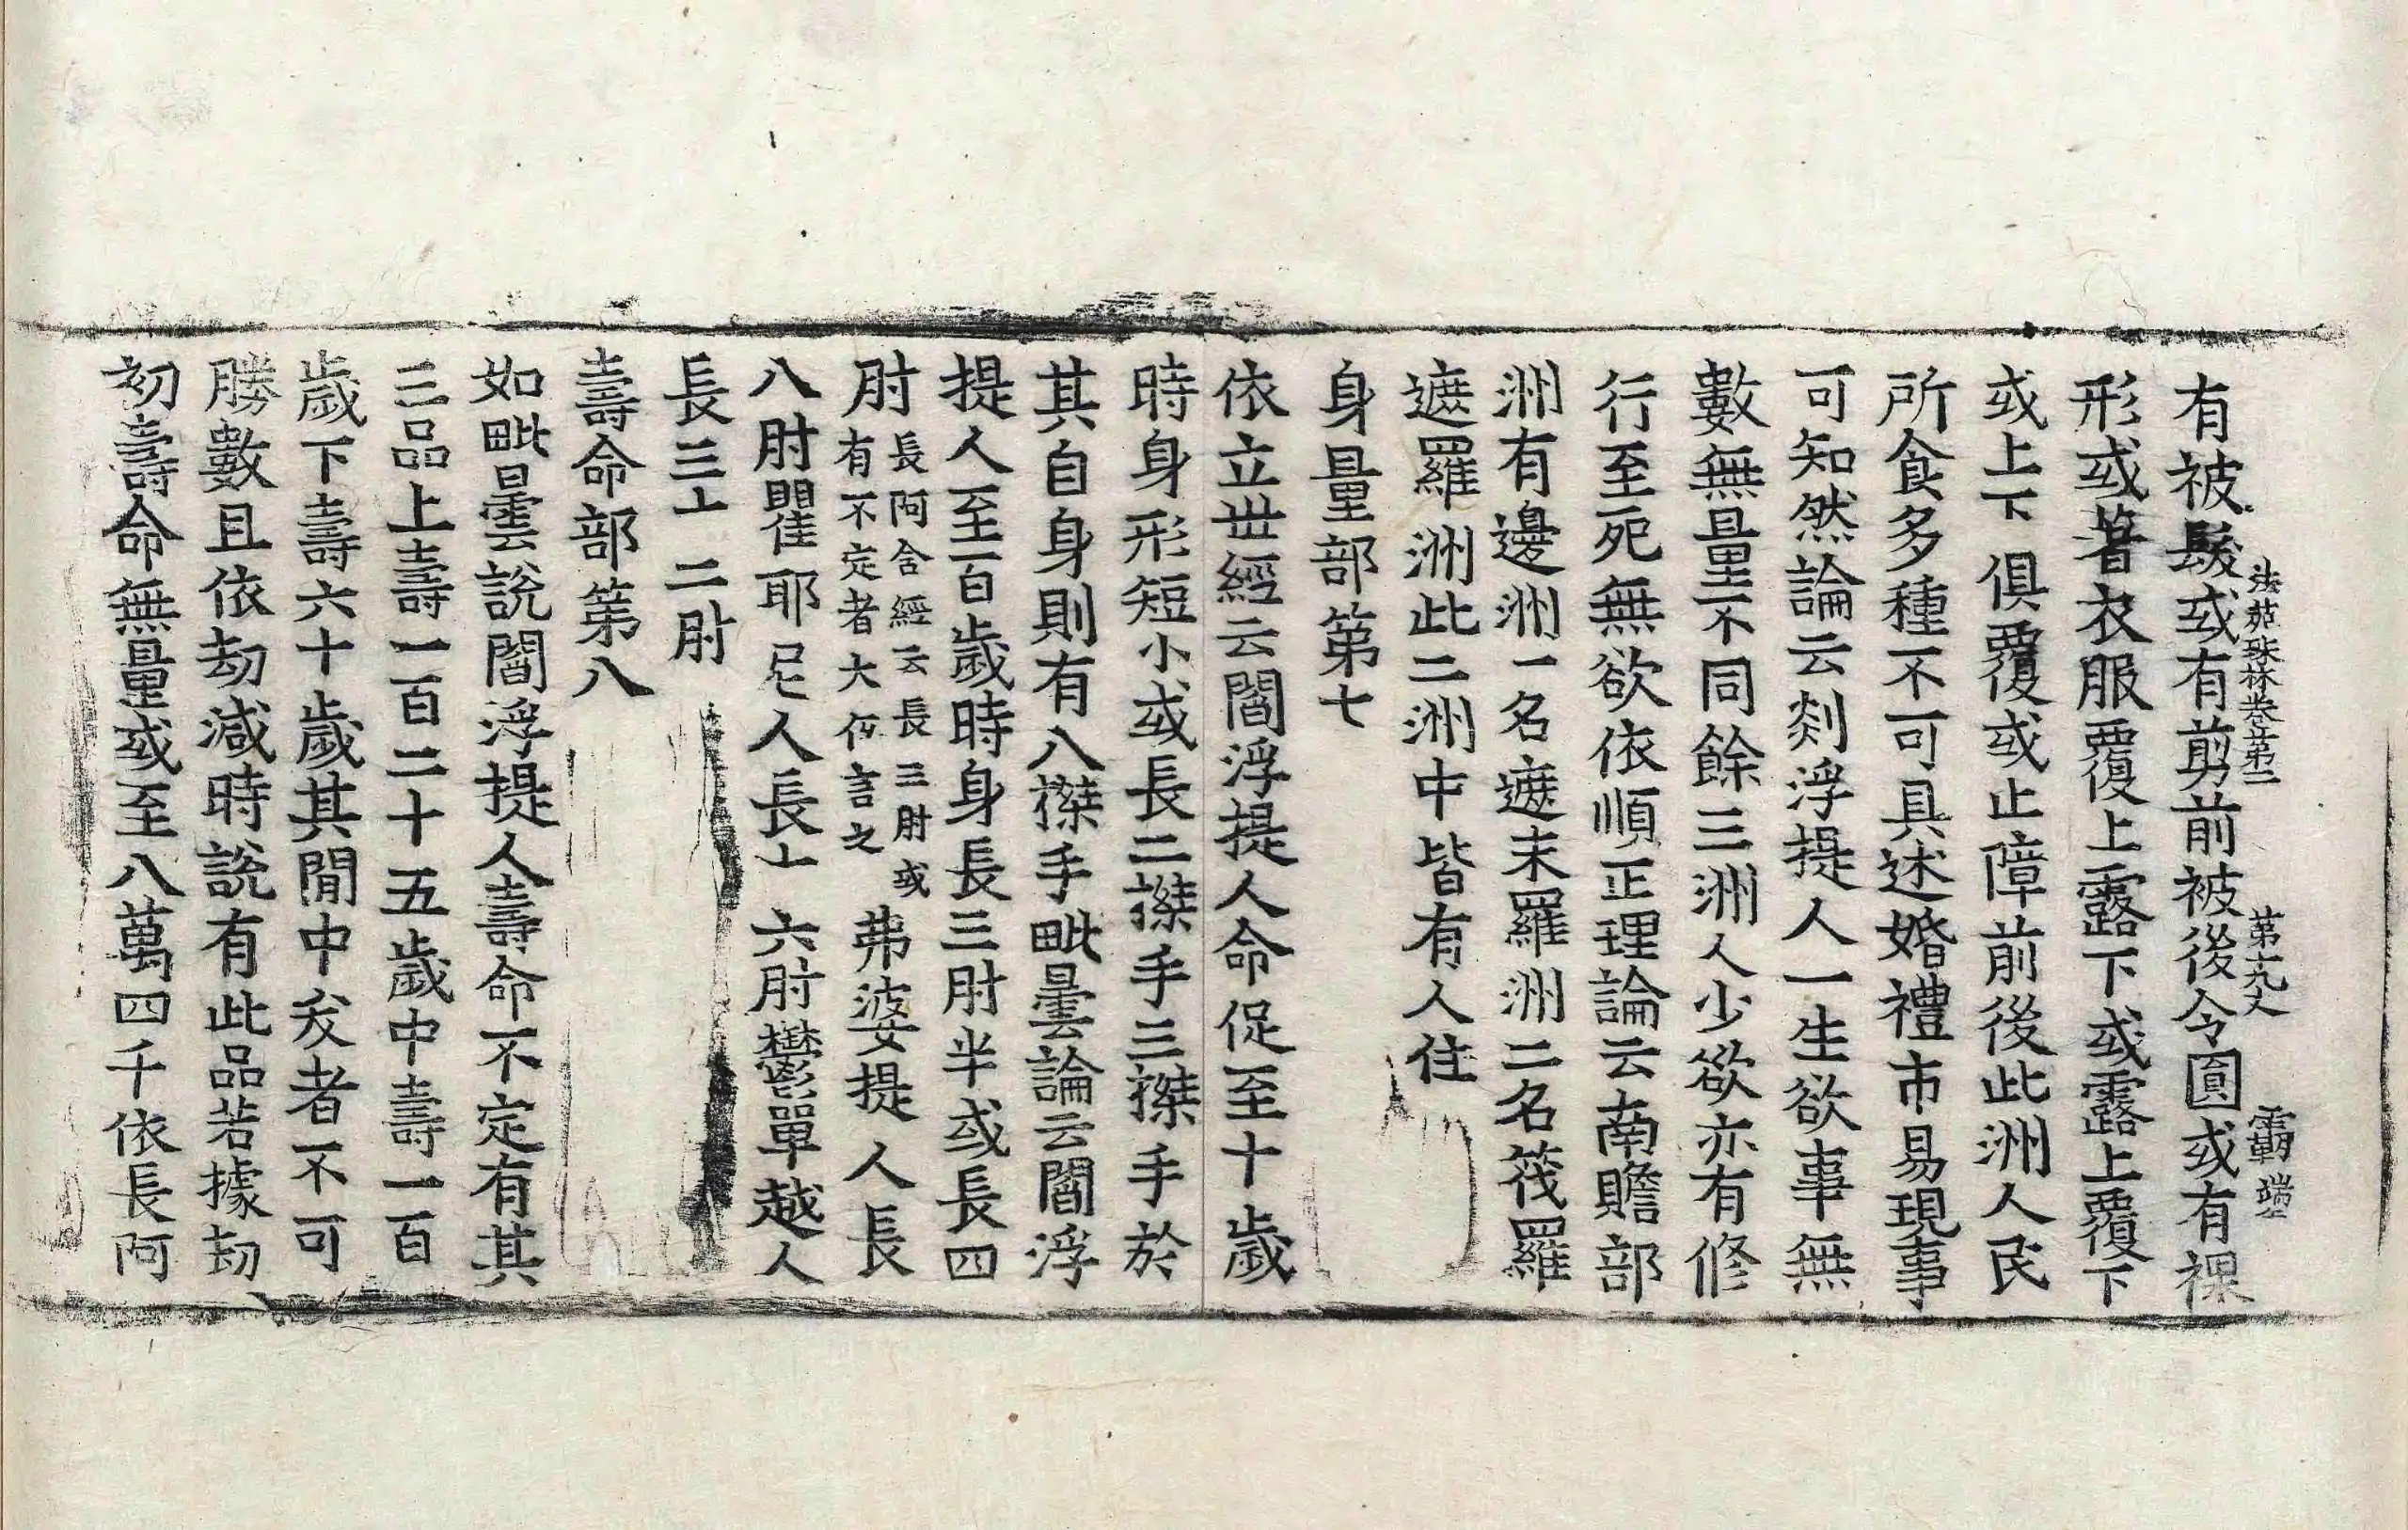 法苑珠林卷第二 第十九丈 覇 端
有被髮或有剪前被後令圓或有裸
形或著衣服覆上露下或露上覆下
或上下俱覆或止障前後此洲人民
所食多種不可具述婚禮市易現事
可知然論云剡浮提人一生欲事無
數無量不同餘三洲人少欲亦有修
行至死無欲依順正理論云南贍部
洲有邊洲一名遮末羅洲二名筏羅
遮羅洲此二洲中皆有人住
身量部第七
依立世經云閻浮提人命促至十歲
時身形短小或長二搩手三搩手於
其自身則有八搩手毗曇論云閻浮
提人至百歲時身長三肘半或長四
肘長阿含經云長三肘或有不定者大優言之弗婆提人長
八肘瞿耶尼人長十六肘欝單越人
長三十二肘
壽命部第八
如毗曇說閻浮提人壽命不定有其
三品上壽一百二十五歲中壽一百
歲下壽六十歲其閒中夭者不可
勝數且依劫減時說有此品若據劫
初壽命無量或至八萬四千依長阿